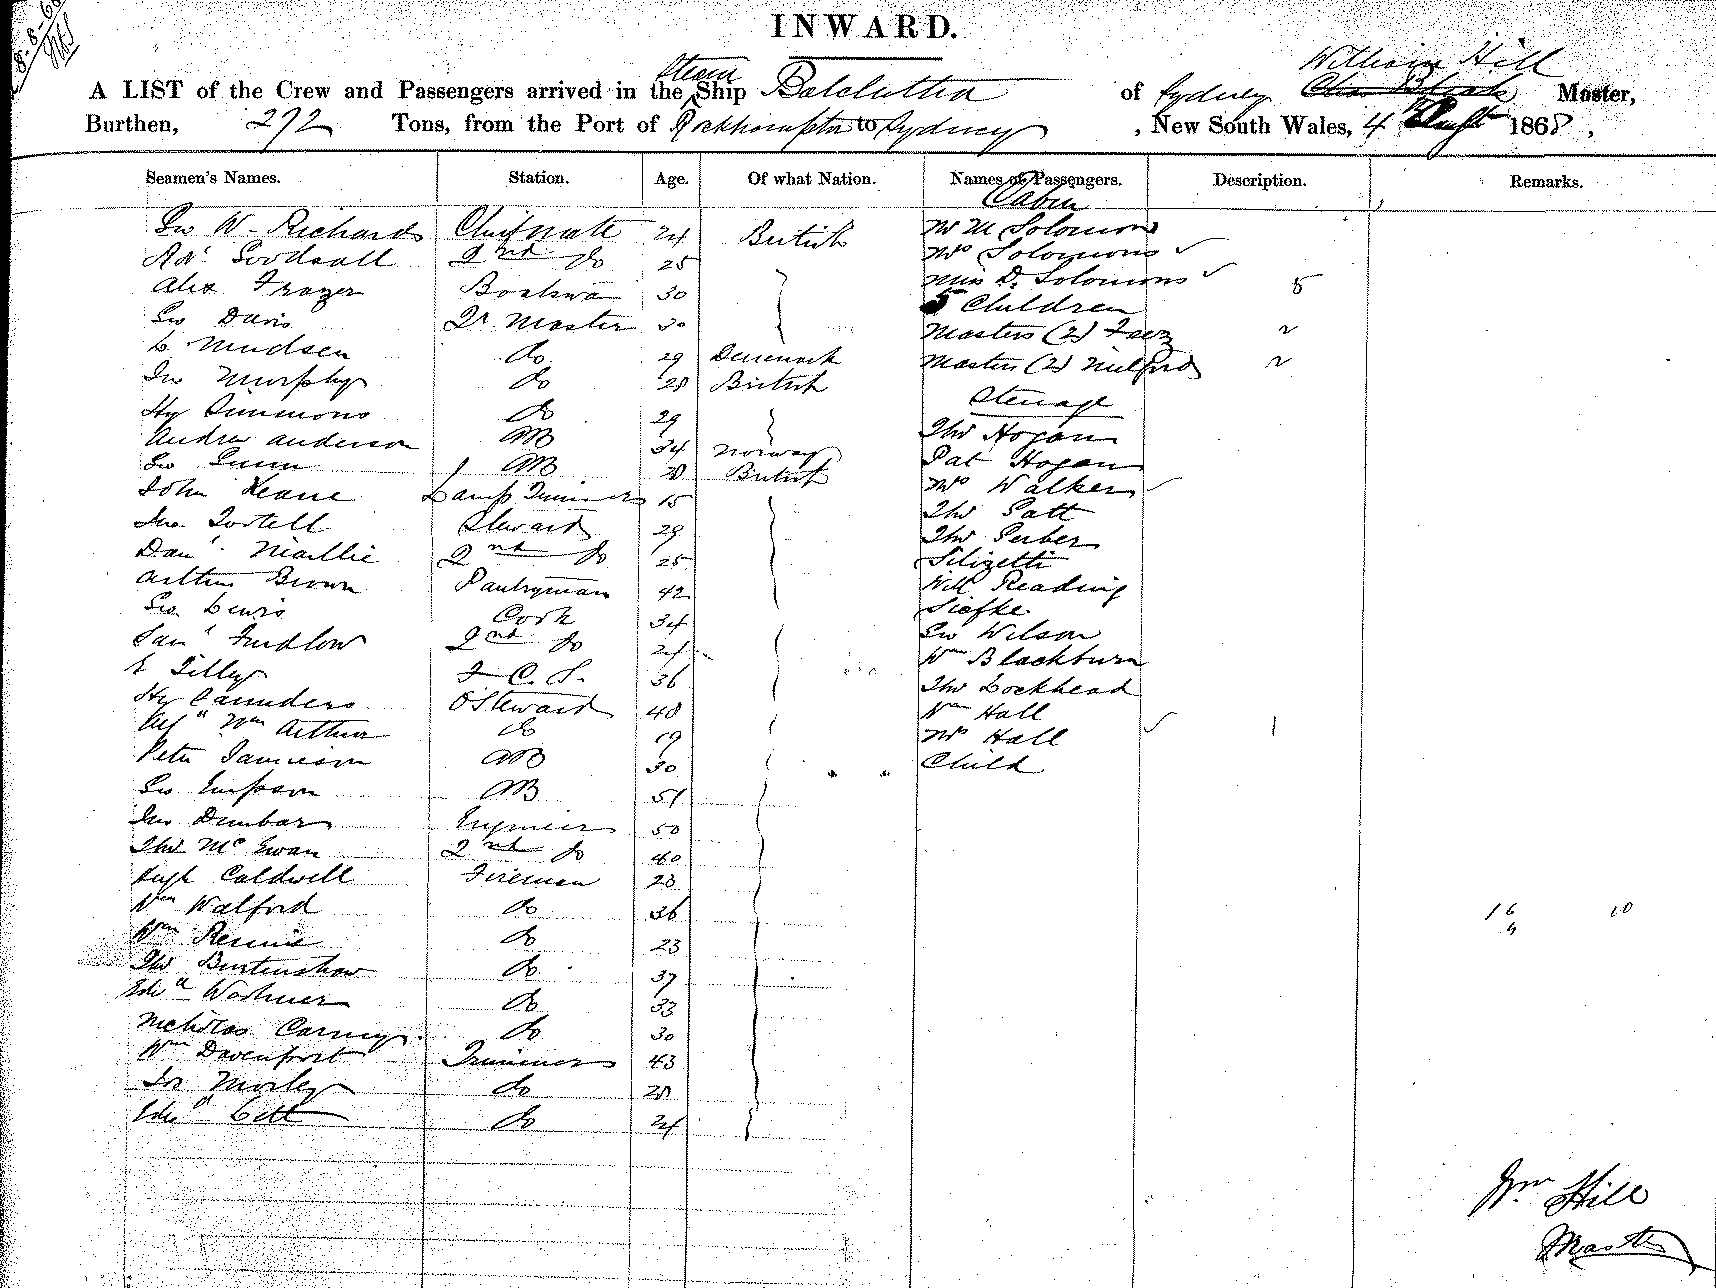 8-8-68
INWARD.
Steam William Hill
A LIST of the Crew and Passengers arrived in the Ship Balclutha of Sydney Master,
Burthen, 272 Tons, from the Port of Rockhampton to Sydney , New South Wales, 4 Augst 1868,
Seamen's Names. Station. Age. Of what Nation. Names of Passengers. Description. Remarks.
Cabin
Geo W. Richards Chief mate 24 British Mr M Solomons
Rd. Goodsall 2nd do 25 Mrs Solomons ✓
Alex Frazer Boatswn 30 Miss D. Solomons ✓ 5
5 Children
Geo Davis Qr Master 30 Masters (2) 2
C Mudsen do 29 Denmark Masters (2) Milford 2
Jno Murphy do 28 British
Steerage
Hy Simmons do 29 Thos Hogan
Andrew Anderson AB 34 Norway Pat Hogan
Geo Gunn AB 28 British
John Keane Lamp Trimmer 15 Mrs Walker ✓
Jno Tortell Steward 29 Thos Patt
Danl. Maillie 2nd do 25 Thos Purber
Silizetti
Arthur Brown Pantryman 42 Will Reading
Geo. Lewis Cook 34 Siefke
Saml Ludlow 2nd do 24 Geo Wilson
E Tilley F. C. S. 36 Wm Blackburn
Hy Saunders O'Steward 40 Thos Lockhead
Alfd Wm Arthur do 19 Wm Hall
Mrs Hall ✓ 1
Peter Jamieson AB 30 Child
Geo Simpson AB 51
Jno Dunbar Engineer 50
Thos McEwan 2nd do 40
Hugh Caldwell Fireman 28
Wm Walford do 36 16 10
4
Wm Rennie do 23
Thos Burtenshaw do 37
Edwd Warhurer do 33
Nicholas Carney do 30
Wm Davenport Trimmer 43
Jos Morley do 28
Edwd Cett do 24
Wm Hill
Master